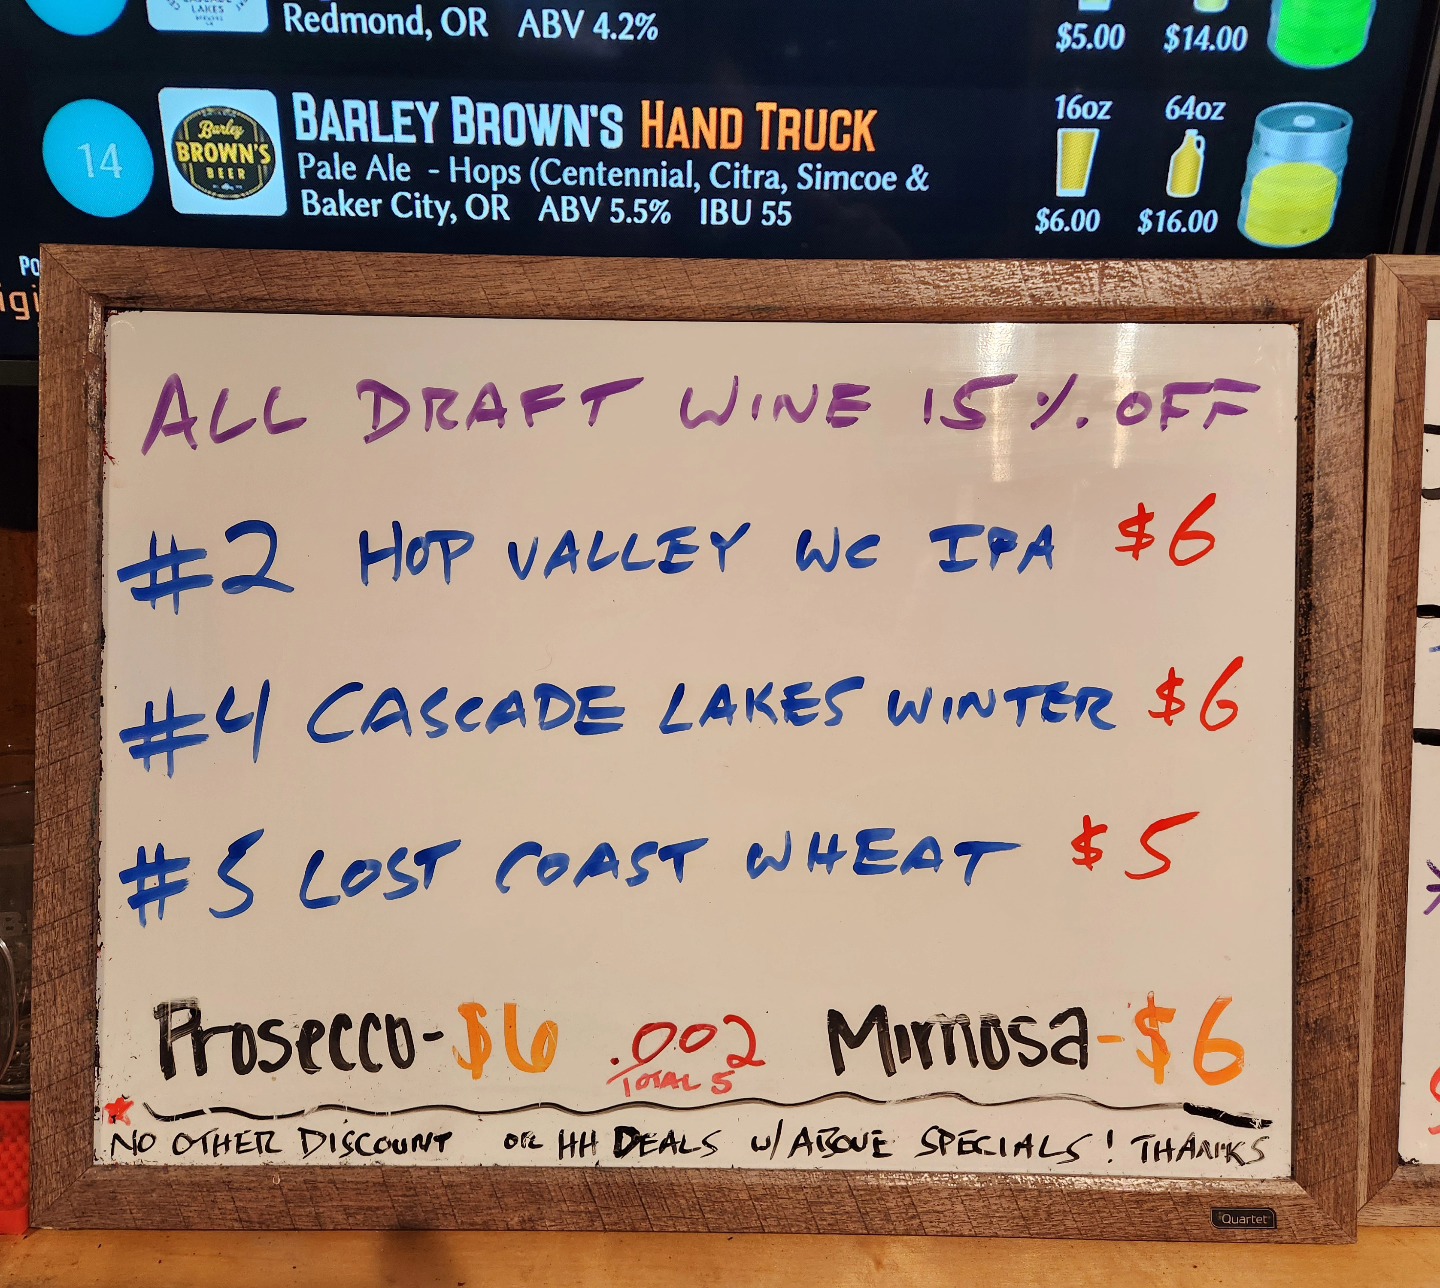 Redmond, OR ABV 4.2%
$5.00 $14.00
14
Barley
BROWN'S
BEER
BARLEY BROWN'S HAND TRUCK
Pale Ale - Hops (Centennial, Citra, Simcoe &
Baker City, OR ABV 5.5% IBU 55
16oz 64oz
$6.00 $16.00
ALL DRAFT WINE 15% OFF
#2 HOP VALLEY WC IPA $6
#4 CASCADE LAKES WINTER $6
#5 LOST COAST WHEAT $5
Prosecco-$6 .002 Mimosa-$6
TOTAL 5
NO OTHER DISCOUNT OR HH DEALS W/ ABOVE SPECIALS! THANKS
Quartet